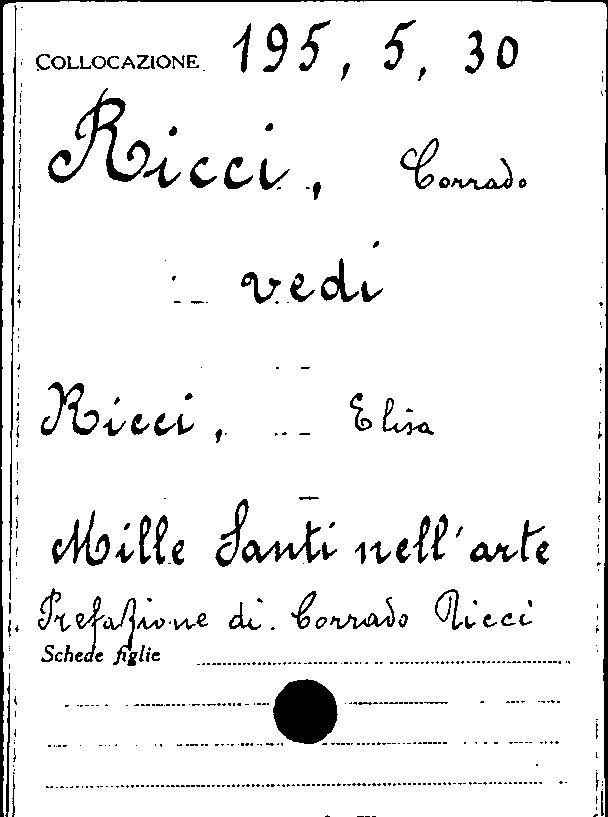 COLLOCAZIONE 195, 5, 30
Ricci, Corrado
vedi
Ricci, Elisa
Mille Santi nell'arte
Prefazione di Corrado Ricci
Schede figlie